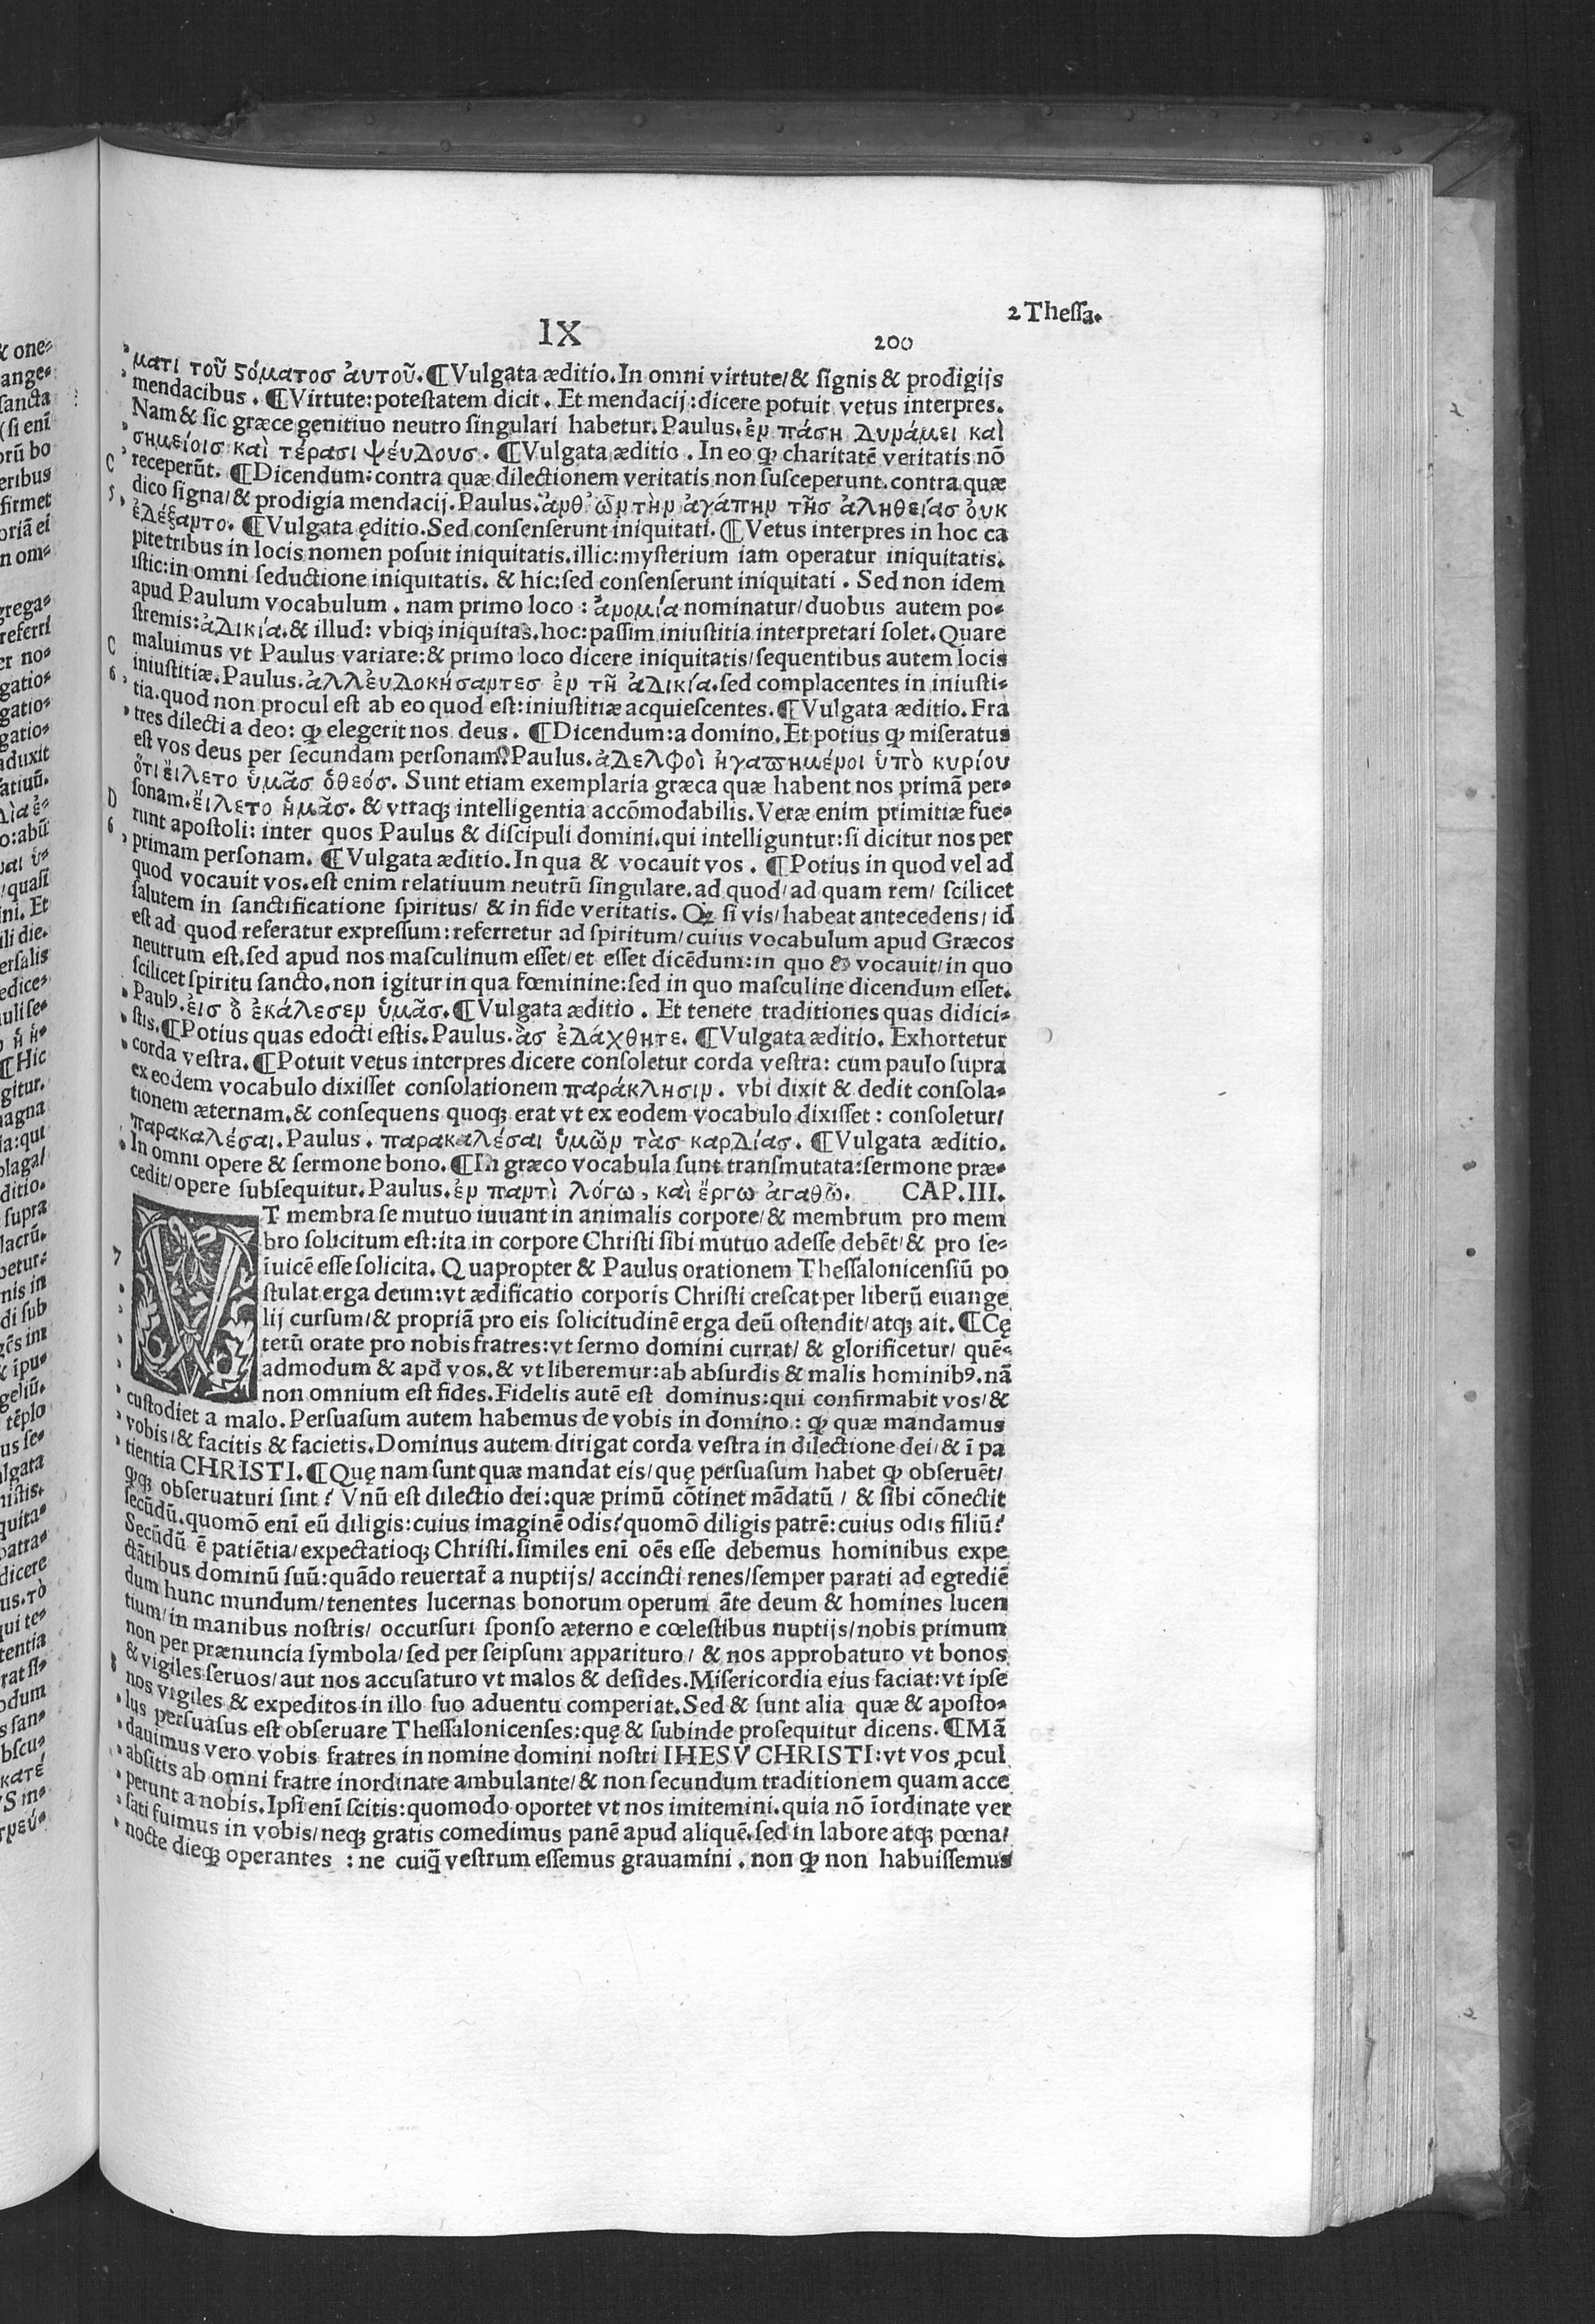 2 Theſſa.
IX
200
ματι τοῦ ςόματοσ ἀυτοῦ. ¶Vulgata æditio. In omni virtute/ & ſignis & prodigijs
mendacibus. ¶Virtute: poteſtatem dicit. Et mendacij: dicere potuit vetus interpres.
Nam & ſic græce genitiuo neutro ſingulari habetur. Paulus. ἐν πάση δυνάμει καὶ
σημείοισ καὶ τέρασι ψέυδουσ. ¶Vulgata æditio. In eo ꝙ charitatē veritatis nō
C receperūt. ¶Dicendum: contra quæ dilectionem veritatis non ſuſceperunt. contra quæ
5 dico ſigna/ & prodigia mendacij. Paulus. ἀνθ᾽ ὧν τὴν ἀγάπην τῆσ ἀληθείασ ὀυκ
ἐδέξαντο. ¶Vulgata ęditio. Sed conſenſerunt iniquitati. ¶Vetus interpres in hoc ca
pite tribus in locis nomen poſuit iniquitatis. illic: myſterium iam operatur iniquitatis.
iſtic: in omni ſeductione iniquitatis. & hic: ſed conſenſerunt iniquitati. Sed non idem
apud Paulum vocabulum. nam primo loco: ἀνομία nominatur/ duobus autem po-
ſtremis: ἀδικία. & illud: vbiq; iniquitas. hoc: paſſim iniuſtitia interpretari ſolet. Quare
C maluimus vt Paulus variare: & primo loco dicere iniquitatis/ ſequentibus autem locis
6 iniuſtitiæ. Paulus. ἀλλἐυδοκήσαντεσ ἐν τῆ ἀδικία. ſed complacentes in iniuſti-
tia. quod non procul eſt ab eo quod eſt: iniuſtitiæ acquieſcentes. ¶Vulgata æditio. Fra
tres dilecti a deo: ꝙ elegerit nos deus. ¶Dicendum: a domino. Et potius ꝙ miſeratus
eſt vos deus per ſecundam perſonam? Paulus. ἀδελφοὶ ἠγαπημένοι ὑπὸ κυρίου
ὅτι ἕιλετο ὑμᾶσ ὁθεόσ. Sunt etiam exemplaria græca quæ habent nos primā per-
D ſonam. ἕιλετο ἡμᾶσ. & vtraq; intelligentia accōmodabilis. Veræ enim primitiæ fue-
6 runt apoſtoli: inter quos Paulus & diſcipuli domini. qui intelliguntur: ſi dicitur nos per
primam perſonam. ¶Vulgata æditio. In qua & vocauit vos. ¶Potius in quod vel ad
quod vocauit vos. eſt enim relatiuum neutrū ſingulare. ad quod/ ad quam rem/ ſcilicet
ſalutem in ſanctificatione ſpiritus/ & in fide veritatis. Qꝫ ſi vis/ habeat antecedens/ id
eſt ad quod referatur expreſſum: referretur ad ſpiritum/ cuius vocabulum apud Græcos
neutrum eſt. ſed apud nos maſculinum eſſet/ et eſſet dicēdum: in quo & vocauit/ in quo
ſcilicet ſpiritu ſancto. non igitur in qua fœminine: ſed in quo maſculine dicendum eſſet.
Paulꝰ. ἐισ ὃ ἐκάλεσεν ὑμᾶσ. ¶Vulgata æditio. Et tenete traditiones quas didici-
ſtis. ¶Potius quas edocti eſtis. Paulus. ἃσ ἐδάχθητε. ¶Vulgata æditio. Exhortetur
corda veſtra. ¶Potuit vetus interpres dicere conſoletur corda veſtra: cum paulo ſupra
ex eodem vocabulo dixiſſet conſolationem παράκλησιν. vbi dixit & dedit conſola-
tionem æternam. & conſequens quoq; erat vt ex eodem vocabulo dixiſſet: conſoletur/
παρακαλέσαι. Paulus. παρακαλέσαι ὑμῶν τὰσ καρδίασ. ¶Vulgata æditio.
In omni opere & ſermone bono. ¶In græco vocabula ſunt tranſmutata: ſermone præ-
cedit/ opere ſubſequitur. Paulus. ἐν παντὶ λόγω, καὶ ἔργω ἀγαθῶ. CAP. III.
VT membra ſe mutuo iuuant in animalis corpore/ & membrum pro mem
bro ſolicitum eſt: ita in corpore Chriſti ſibi mutuo adeſſe debēt/ & pro ſe-
7 iuicē eſſe ſolicita. Quapropter & Paulus orationem Theſſalonicenſiū po
ſtulat erga deum: vt ædificatio corporis Chriſti creſcat per liberū euange
lij curſum/ & propriā pro eis ſolicitudinē erga deū oſtendit/ atq; ait. ¶Cę
terū orate pro nobis fratres: vt ſermo domini currat/ & glorificetur/ quē-
admodum & apđ vos. & vt liberemur: ab abſurdis & malis hominibꝰ. nā
non omnium eſt fides. Fidelis autē eſt dominus: qui confirmabit vos/ &
cuſtodiet a malo. Perſuaſum autem habemus de vobis in domino: ꝙ quæ mandamus
vobis/ & facitis & facietis. Dominus autem dirigat corda veſtra in dilectione dei/ & ī pa
tientia CHRISTI. ¶Quę nam ſunt quæ mandat eis/ quę perſuaſum habet ꝙ obſeruēt/
ꝙq; obſeruaturi ſint? Vnū eſt dilectio dei: quæ primū cōtinet mādatū/ & ſibi cōnectit
ſecūdū. quomō enī eū diligis: cuius imaginē odis? quomō diligis patrē: cuius odis filiū?
Secūdū ē patiētia/ expectatioq; Chriſti. ſimiles enī oēs eſſe debemus hominibus expe
ctātibus dominū ſuū: quādo reuertat̃ a nuptijs/ accincti renes/ ſemper parati ad egrediē
dum hunc mundum/ tenentes lucernas bonorum operum āte deum & homines lucen
tium/ in manibus noſtris/ occurſuri ſponſo æterno e cœleſtibus nuptijs/ nobis primum
non per prænuncia ſymbola/ ſed per ſeipſum apparituro/ & nos approbaturo vt bonos
8 & vigiles ſeruos/ aut nos accuſaturo vt malos & deſides. Miſericordia eius faciat: vt ipſe
nos vigiles & expeditos in illo ſuo aduentu comperiat. Sed & ſunt alia quæ & apoſto-
lus perſuaſus eſt obſeruare Theſſalonicenſes: quę & ſubinde proſequitur dicens. ¶Mā
dauimus vero vobis fratres in nomine domini noſtri IHESV CHRISTI: vt vos ꝓcul
abſitis ab omni fratre inordinate ambulante/ & non ſecundum traditionem quam acce
perunt a nobis. Ipſi enī ſcitis: quomodo oportet vt nos imitemini. quia nō īordinate ver
ſati fuimus in vobis/ neq; gratis comedimus panē apud aliquē. ſed in labore atq; pœna/
nocte dieq; operantes: ne cuiq̄ veſtrum eſſemus grauamini. non ꝙ non habuiſſemus